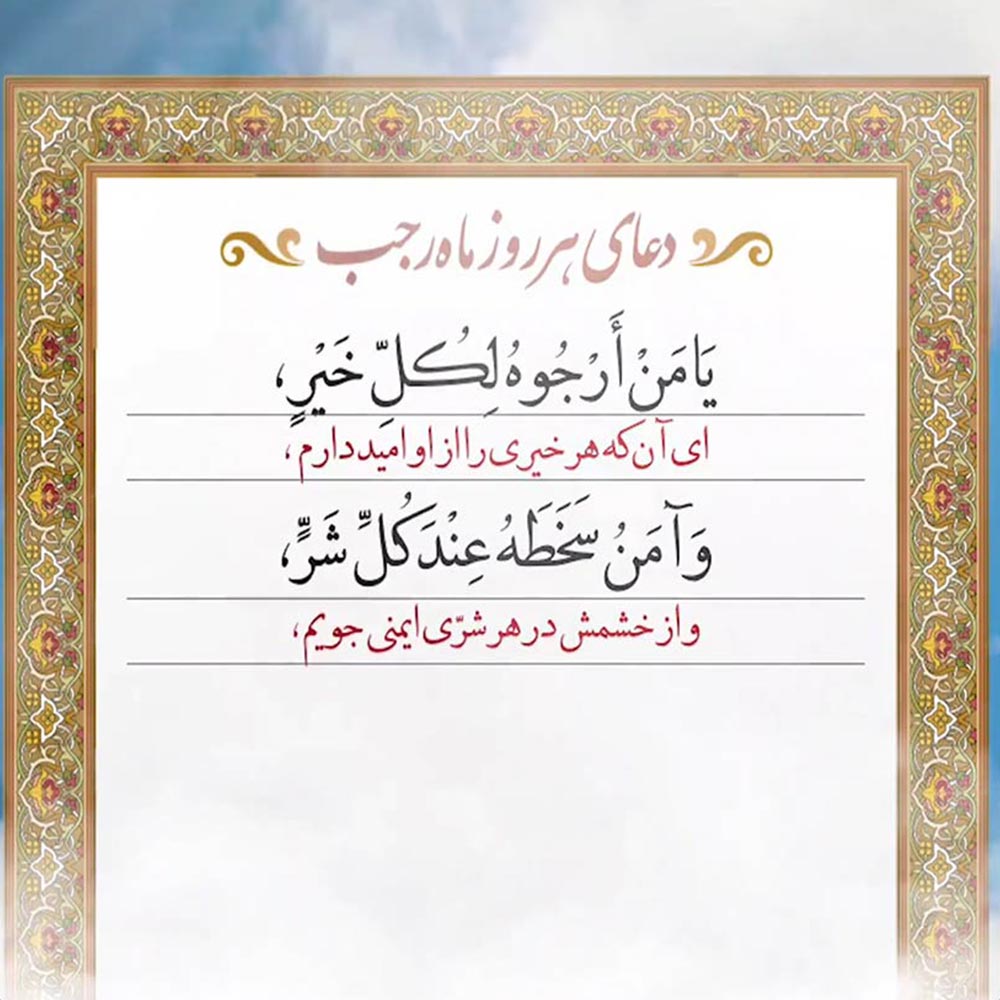 دعای هر روز ماه رجب
يَا مَنْ أَرْجُوهُ لِكُلِّ خَيْرٍ،
ای آن که هر خیری را از او امید دارم،
وَ آمَنُ سَخَطَهُ عِنْدَ كُلِّ شَرٍّ،
و از خشمش در هر شرّی ایمنی جویم،